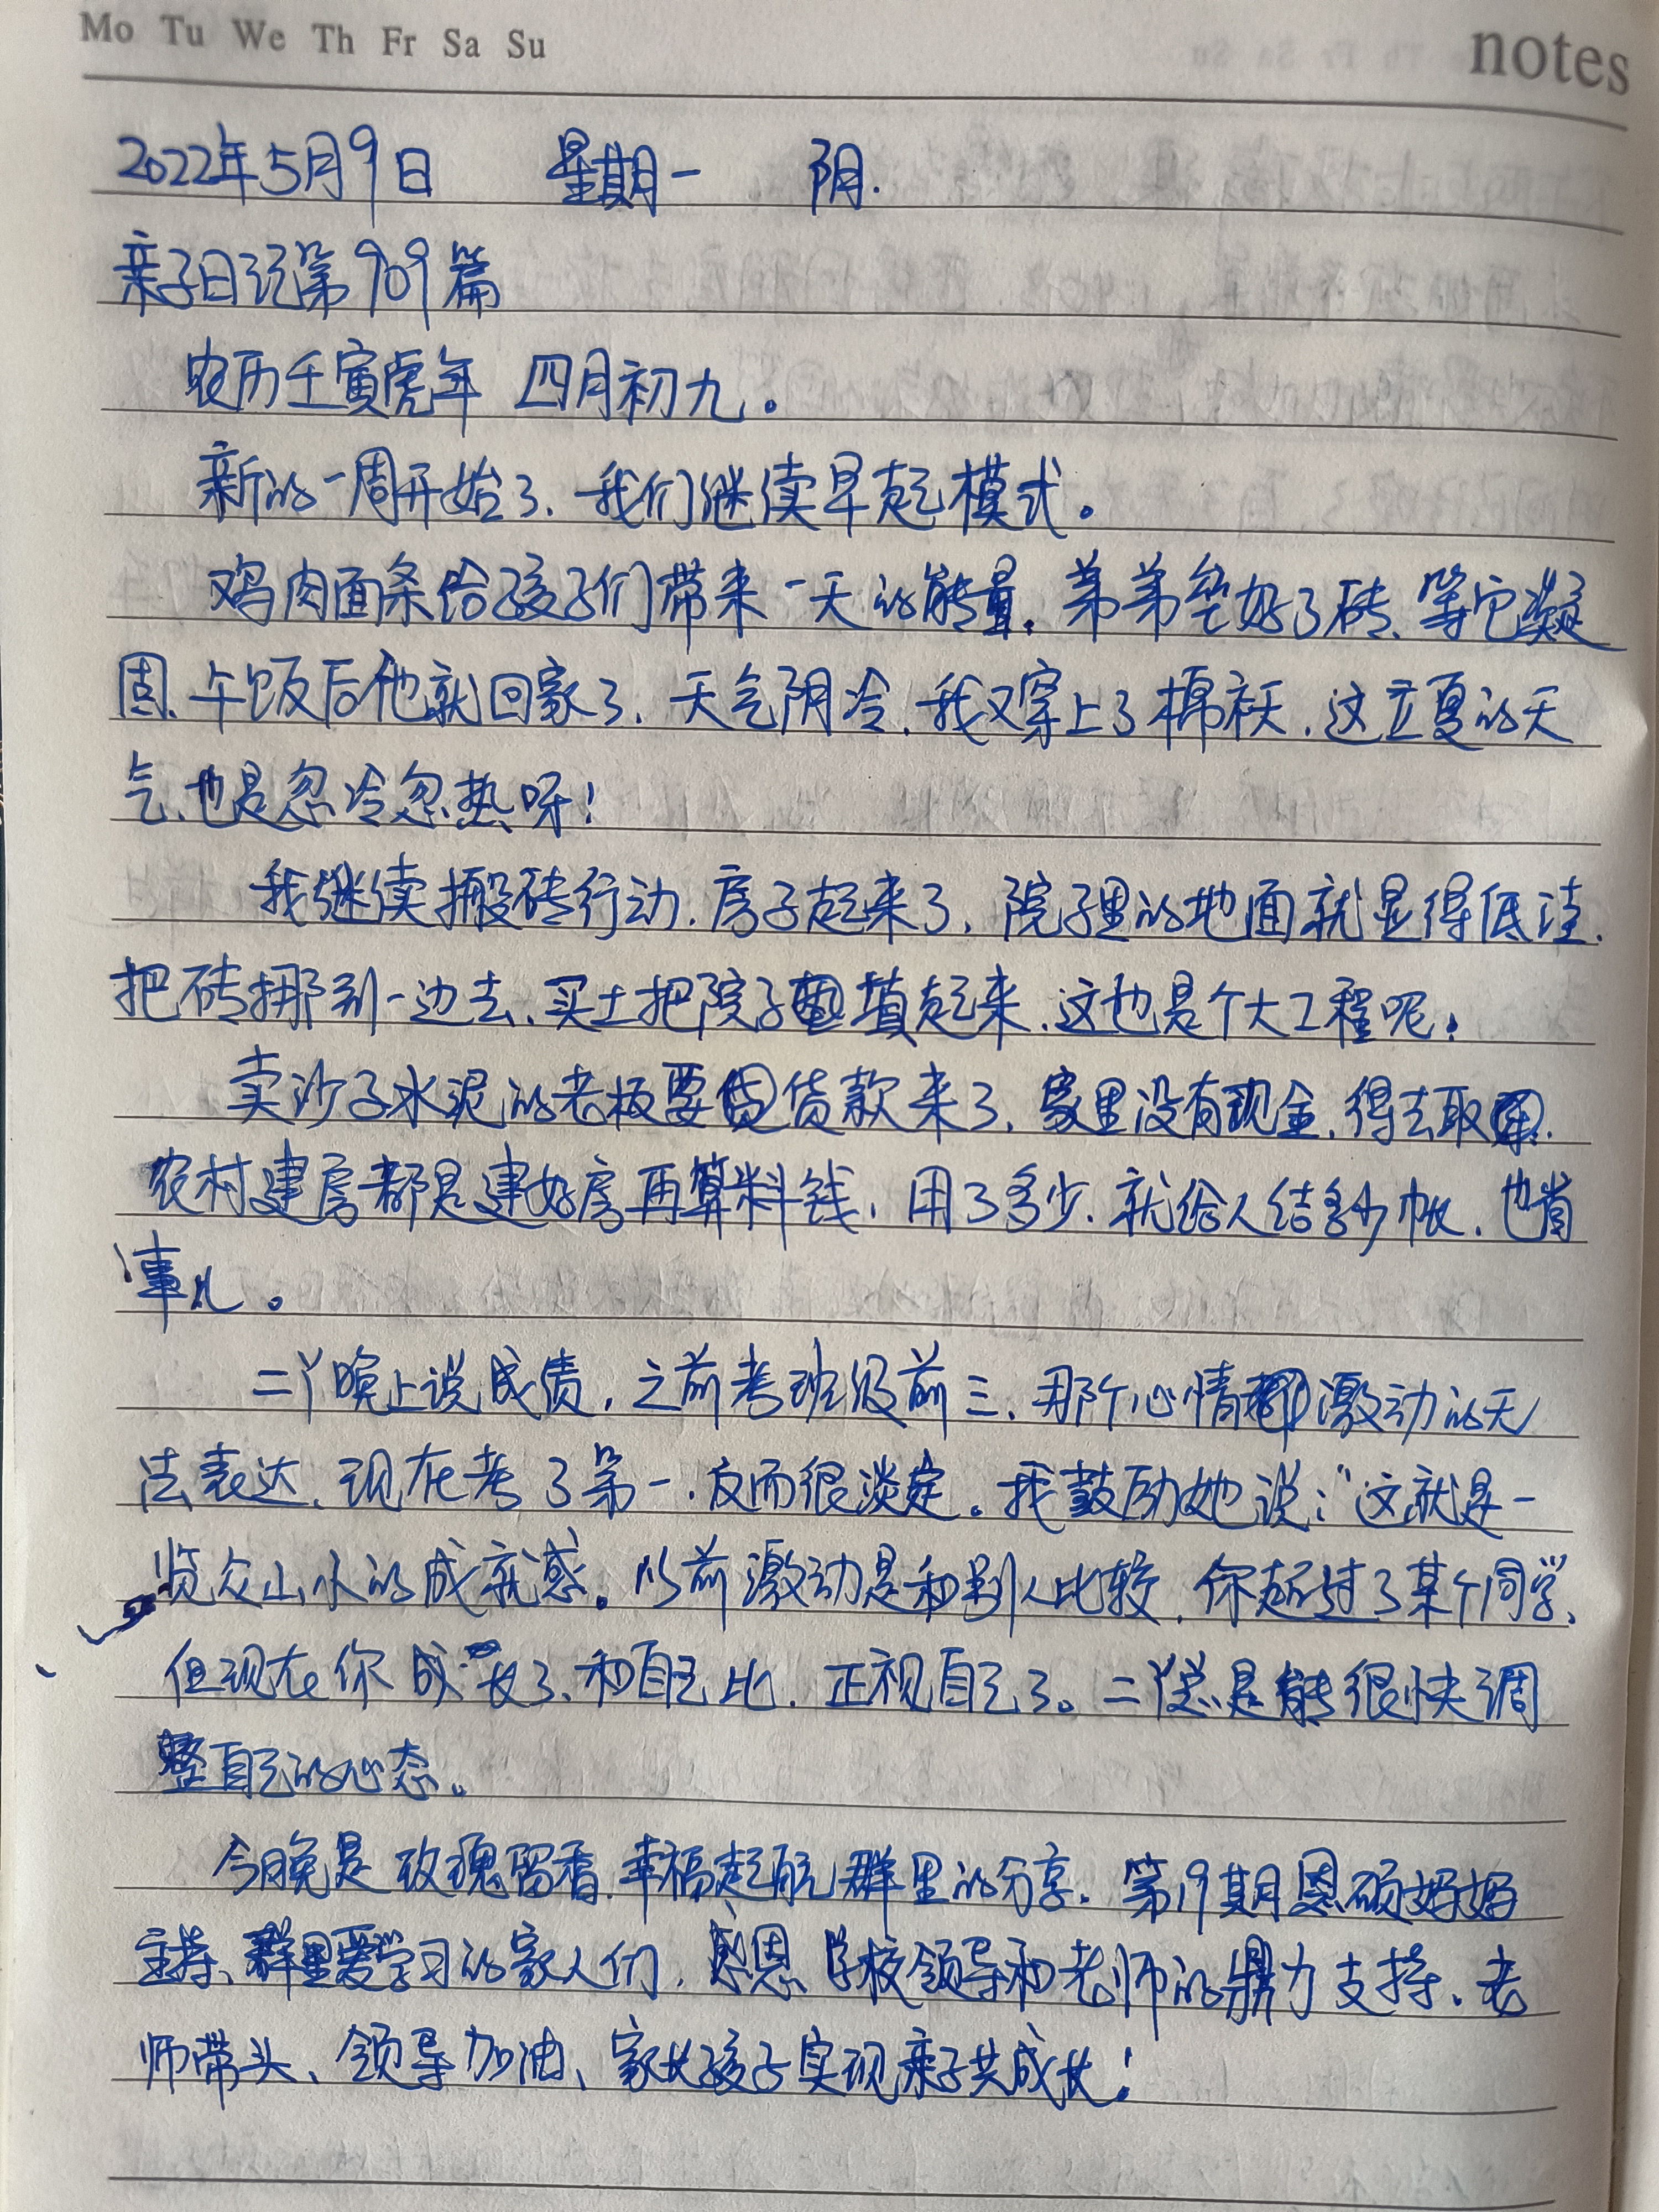 Mo Tu We Th Fr Sa Su notes
2022年5月9日 星期一 阴.
亲子日记第909篇
农历壬寅虎年 四月初九。
新的一周开始了、我们继续早起模式。
鸡肉面条给孩子们带来一天的能量.弟弟垫好了砖、等它凝
固、午饭后他就回家了.天气阴冷.我又穿上了棉袄.这立夏的天
气、也是忽冷忽热呀!
我继续搬砖行动.房子起来了.院子里的地面就显得低洼.
把砖挪到一边去、买土把院子填起来.这也是个大工程呢!
卖沙子水泥的老板要货款来了.家里没有现金.得去取.
农村建房都是建好房再算料钱.用了多少.就给人结多少帐.也省
事儿。
二丫晚上说成绩.之前考班级前三.那个心情激动的无
法表达.现在考了第一.反而很淡定。我鼓励她说:“这就是一
览众山小的成就感。以前激动是和别人比较.你超过了某个同学、
但现在你成长了、和自己比.正视自己了。二丫总是能很快调
整自己的心态。
今晚是玫瑰留香.幸福起航群里的分享.第19期恩硕妈妈
主持、群里爱学习的家人们.感恩学校领导和老师的鼎力支持、老
师带头、领导加油、家长孩子实现亲子共成长!